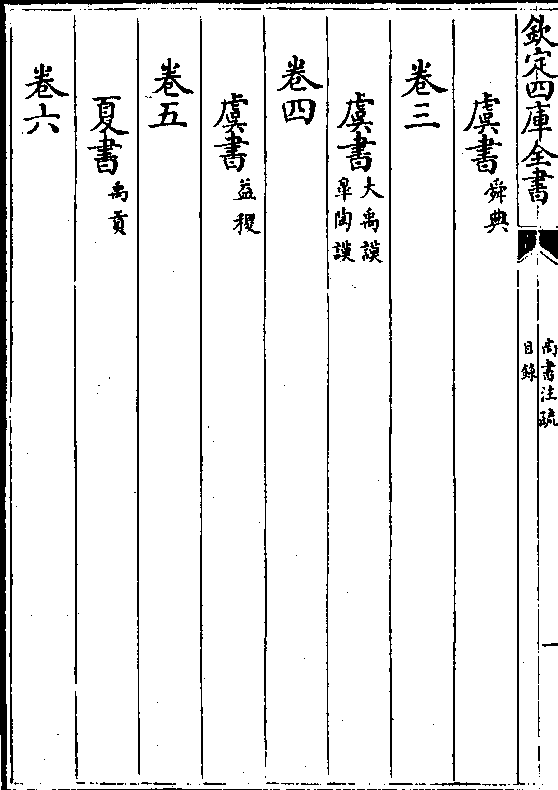 欽定四庫全書
尚書注疏
目錄
一
虞書 舜典
卷三
虞書 大禹謨
皐陶謨
卷四
虞書 益稷
卷五
夏書 禹貢
卷六